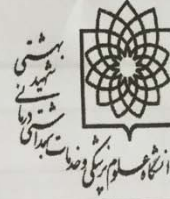 دانشگاه علوم پزشکی و خدمات بهداشتی درمانی
شهید
بهشتی